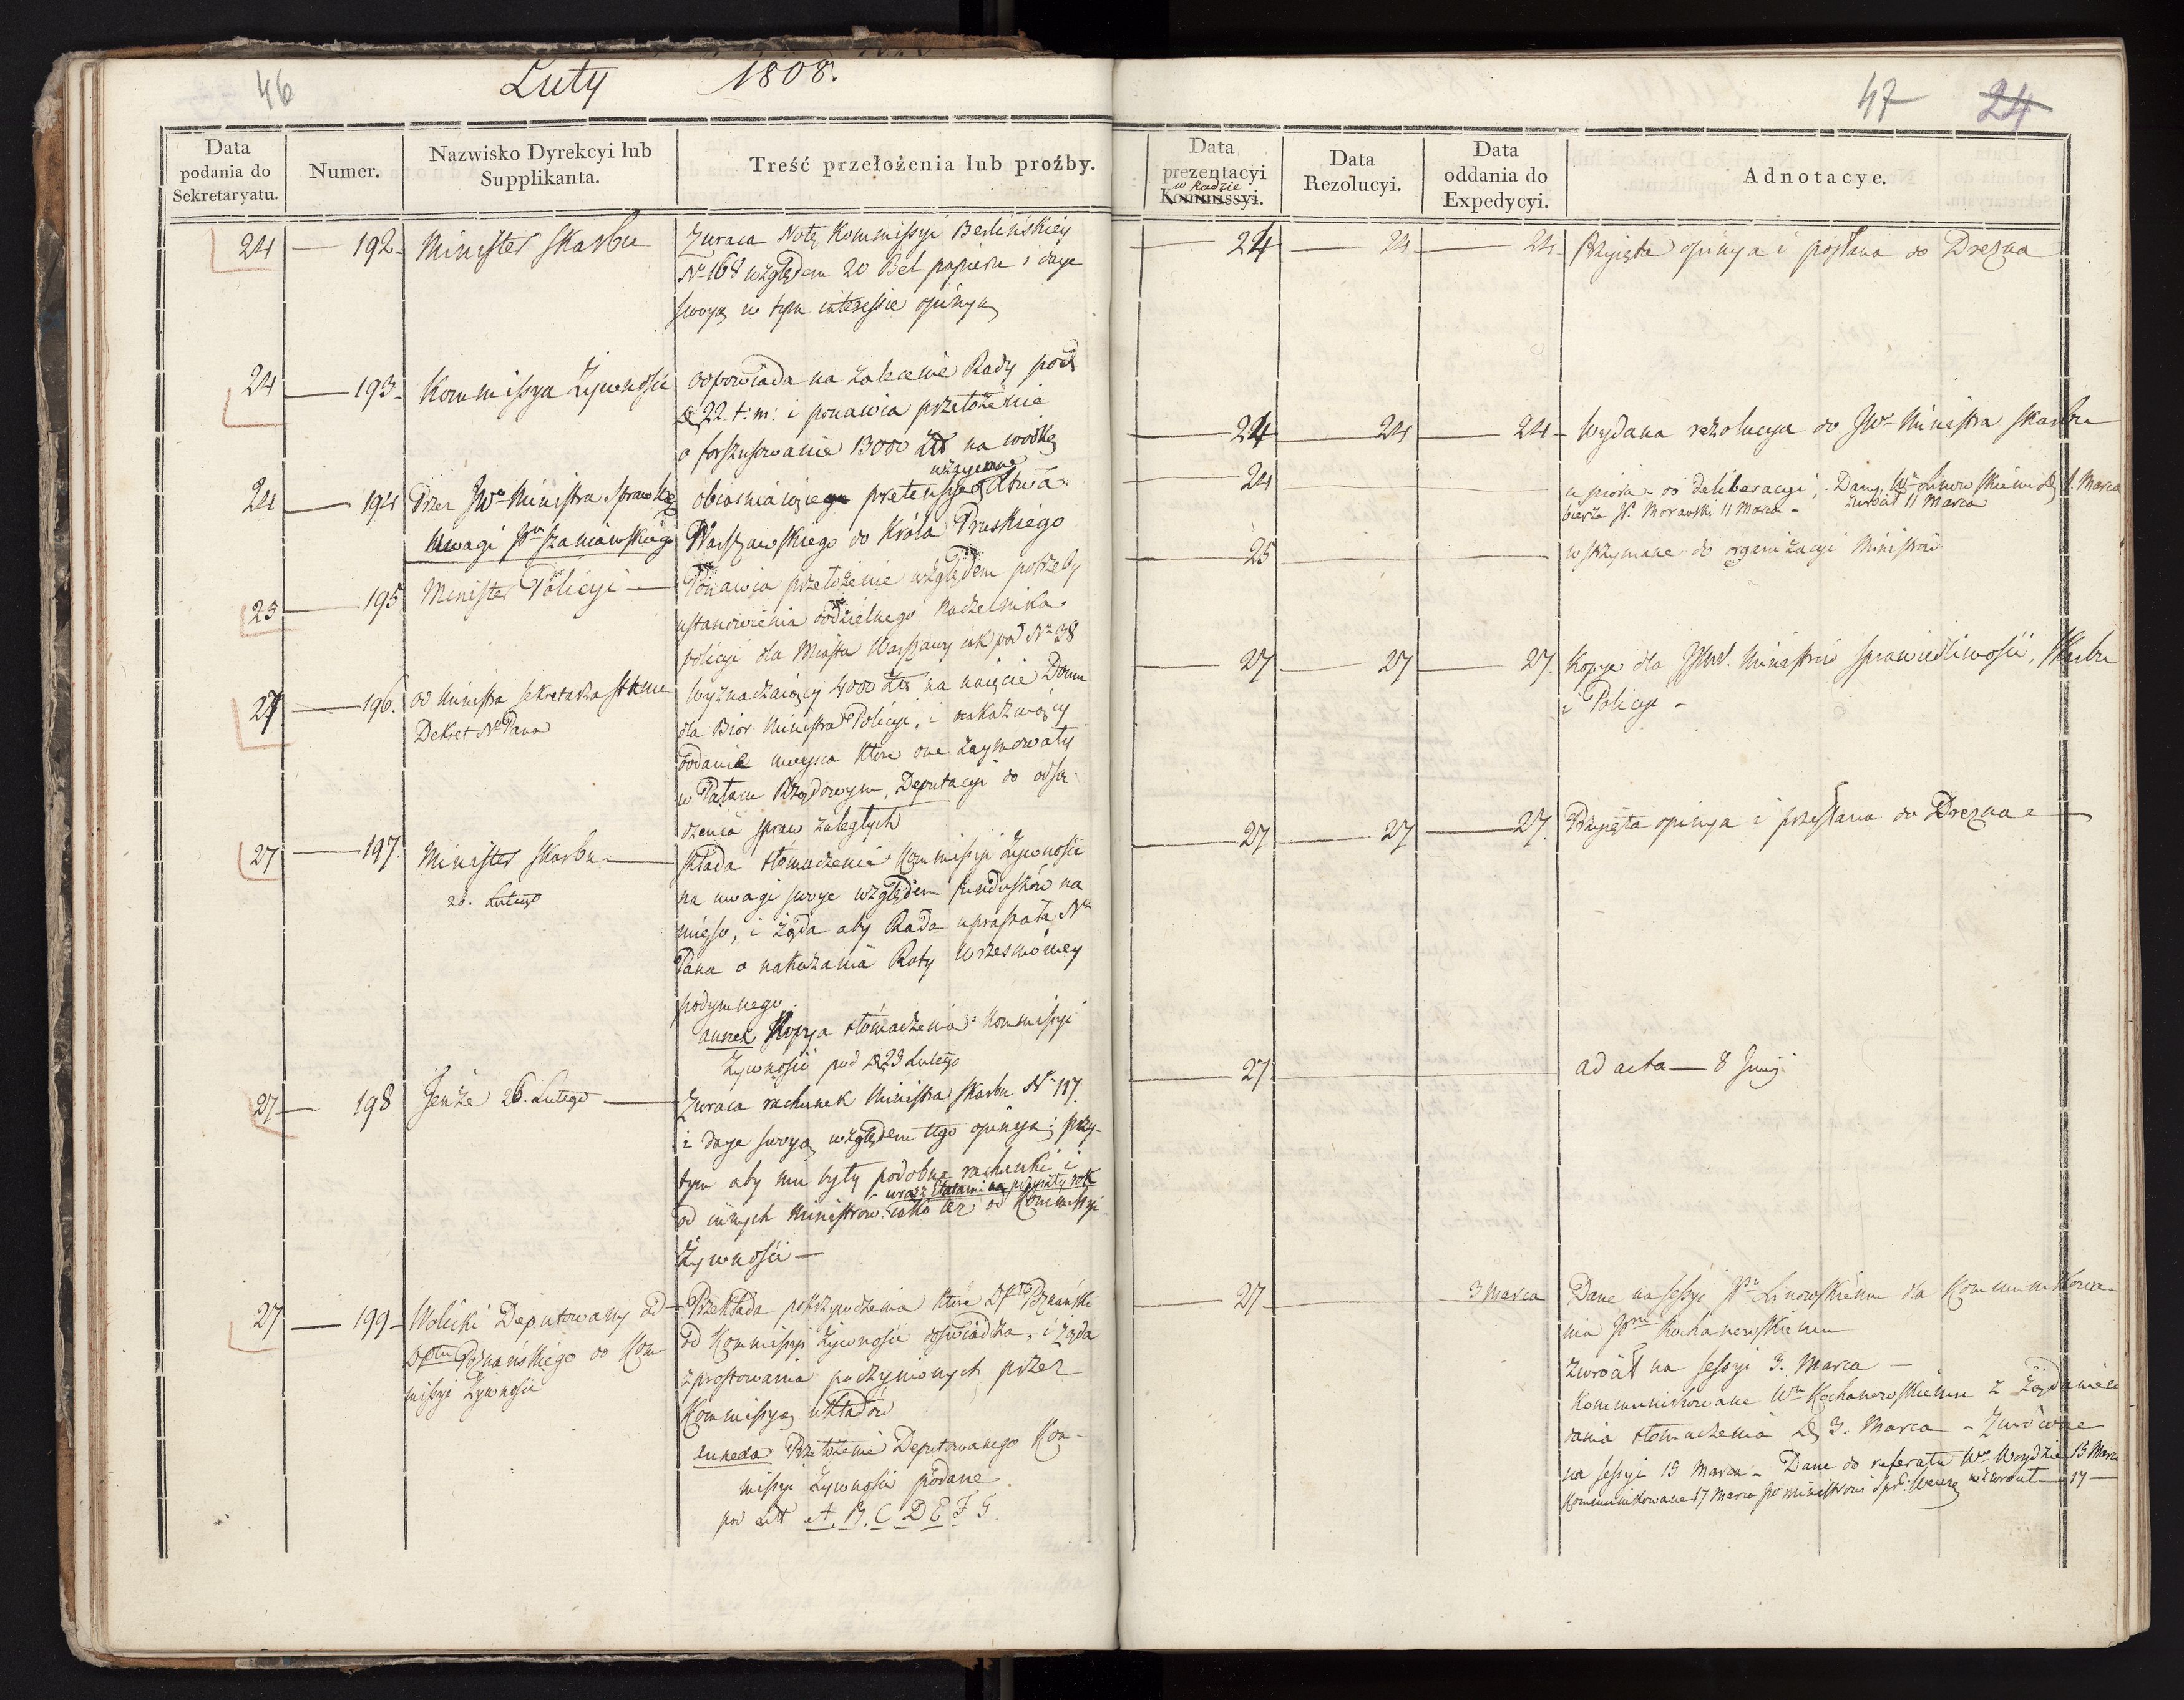 46
Luty 1808.
Data podania do Sekretaryatu.
Numer.
Nazwisko Dyrekcyi lub Supplikanta.
Treść przełożenia lub proźby.
24 — 192 — Minister Skarbu
Zwraca Notę Kommissyi Berlińskiey
Nr 168 względem 20 Bel papieru i daje
swoyą w tym interessie opinyą
24 — 193 — Kommissya Żywności
odpowiada na zalecenie Rady pod
D 22 t: m: i ponawia przełożenie
o forszusowanie 13000 Złł na wódkę
24 — 194 Przez JWo Ministra Sprawied
Uwagi JPa Szaniawskiego
wzajemne
obiaśniaiące pretensye Xtwa
Warszawskiego do Króla Pruskiego
25 — 195 Minister Policyi —
Ponawia przełożenie względem potrzeby
ustanowienia oddzielnego Naczelnika
policyi dla Miasta Warszawy iak pod Nr 38
27 — 196. od Ministra Sekretarza Stanu
Dekret N. Pana
Wyznaczaiący 4000 Złł na naięcie Domu
dla Biór Ministra Policyi, i nakazuiący
oddanie mieysca które one zaymowały
w Pałacu Rządowym, Deputacyi do odsą-
dzenia spraw zaległych
27 — 197. Minister Skarbu —
26. Lutego
składa tłomaczenie Kommissyi Żywności
na uwagi swoje względem funduszów na
mięso, i żąda aby Rada upraszała N.
Pana o nakazanie Raty Wrześniowey
podymnego
annex Kopya tłomaczenia Kommissyi
Żywności pod D 23 Lutego
27 — 198 Tenże 26. Lutego —
Zwraca rachunek Ministra Skarbu Nr 117.
i daje swoyą względem tego opinyą; przy-
tym aby mu były podobne rachunki i
wraz Etatami na przyszły rok
od innych Ministrów iako też od Kommissyi
Żywności —
27 — 199 — Wolicki Deputowany od
Dptu Poznańskiego do Kom-
missyi Żywności
Przekłada pokrzywdzenia które Dpt Poznański
od Kommissyi Żywności doświadcza, i żąda
sprostowania poczynionych przez
Kommissyą układów
annexa Przełożenie Deputowanego Kom-
missyi Żywności podane
pod Litt A. B. C. D E F G.
47 24
Data prezentacyi w Radzie Kommissyi.
Data Rezolucyi.
Data oddania do Expedycyi.
Adnotacye.
24 — 24 — 24 — Przyięta opinya i posłana do Drezna
24 — 24 — 24 — Wydana rezolucya do JWo Ministra Skarbu
24 — do deliberacyi; Dany Wu Linowskiemu D 1. Marca
bierze JP. Morawski 11 Marca — zwrócił 11 Marca
25 — wstrzymane do organizacyi Ministrów
27 — 27 — 27. Kopye dla JJWW. Ministrów Sprawiedliwości, Skarbu
i Policyi —
27 — 27 — 27. Przyięta opinya i przesłana do Drezna —
27 — ad acta — 8 Junij
27 — 3 Marca
Dane na Sessyi JPu Linowskiemu dla Kommunikowa-
nia JPanu Kochanowskiemu
zwrócił na Sessyi 3. Marca —
Kommunikowane Wu Kochanowskiemu z żądaniem
dania tłomaczenia D 3. Marca — Zwrócone
na Sessyi 15 Marca — Dane do referatu Wu Woydzie 15 Marca
Kommunikowane 17 Marca JW Ministrowi Spr: Wewn: zwrócił — 17 —